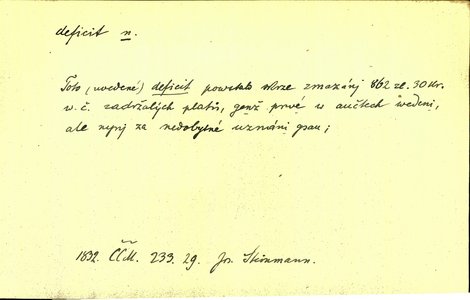 deficit n.
Toto (uvedené) deficit povstalo skrze zmazánj 862 zl. 30 kr.
w. č. zadržalých platů, genž prvé w aučtech wedeni,
ale nynj za nedobytné uznáni gsau;
1832. ČČM. 233. 29. Jos. Steinmann.